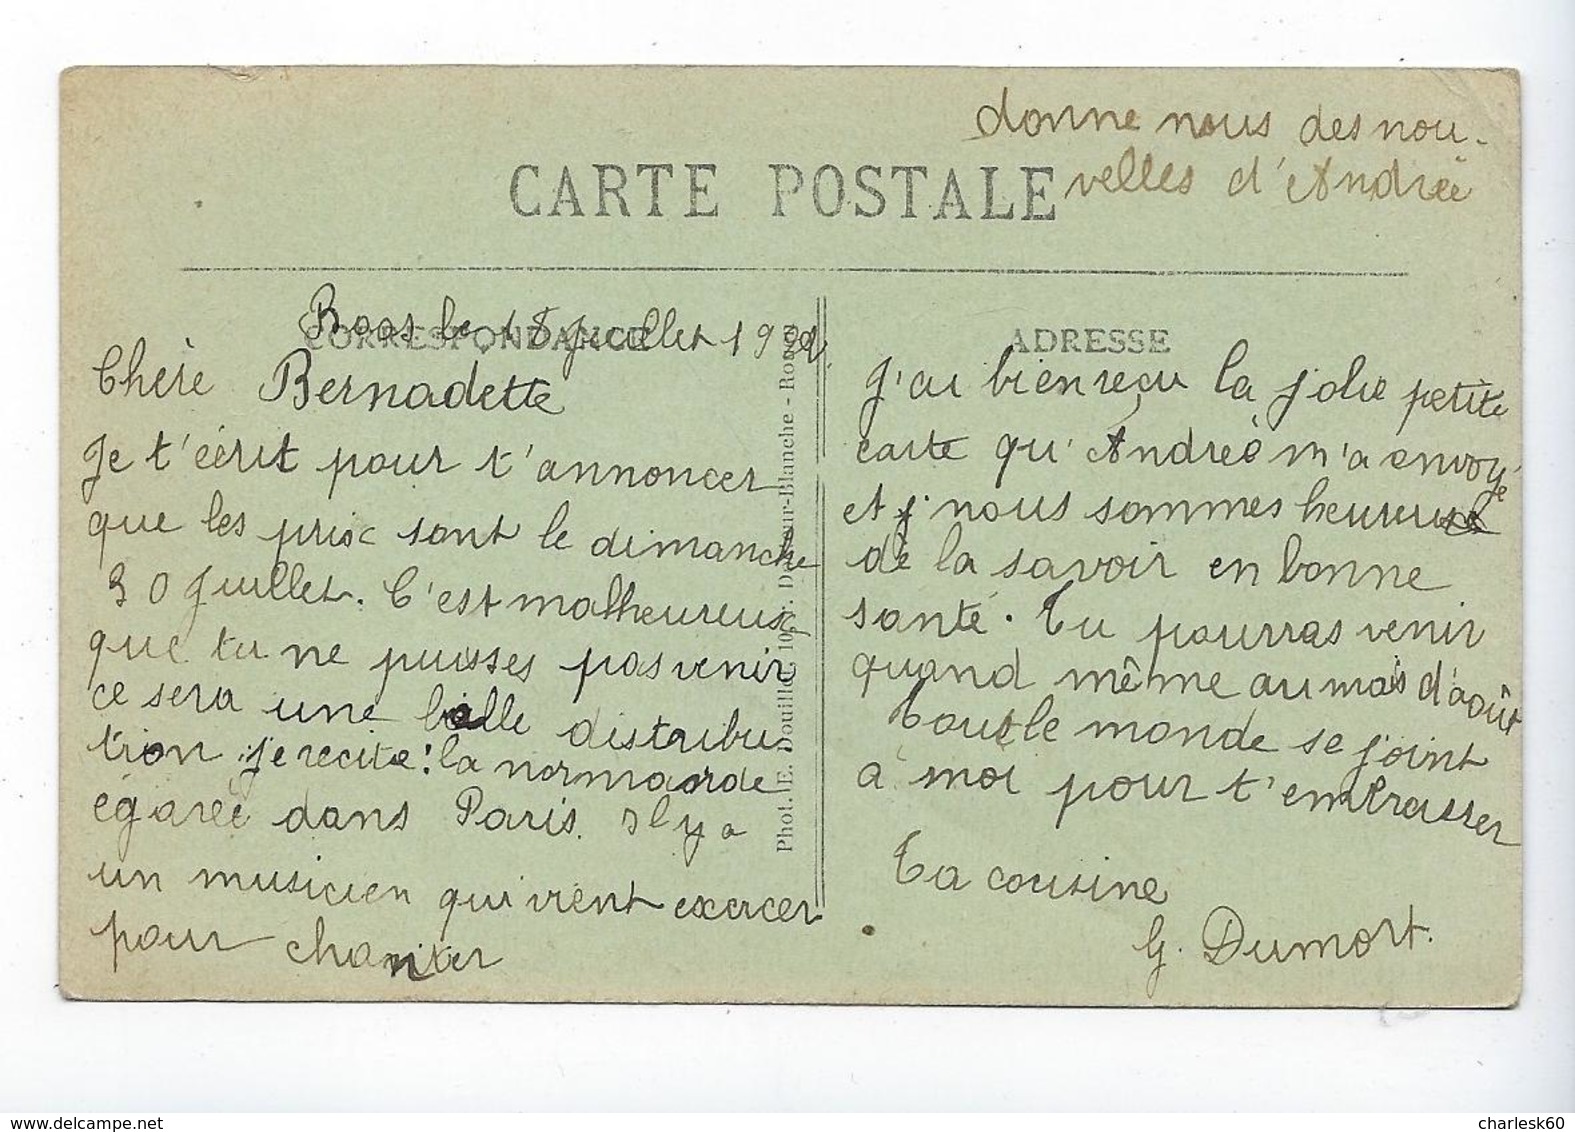 donne nous des nou-
velles d'Andrée
CARTE POSTALE
CORRESPONDANCE
Boos le 18 juillet 19
Chère Bernadette
Je t'écrit pour t'annoncer
que les prix sont le dimanche
30 Juillet. C'est malheureux
que tu ne puisses pas venir
ce sera une belle distribu-
tion je recite: la normande
égarée dans Paris. Il y a
un musicien qui vient exercer
pour chanter
Phot. E. Douillet, 10, r. Blanche - Rouen
ADRESSE
J'ai bien reçu la jolie petite
carte qu'Andrée m'a envoyée
et nous sommes heureux
de la savoir en bonne
santé. Tu pourras venir
quand même au mois d'août
Tout le monde se joint
à moi pour t'embrasser
Ta cousine
G. Dumort.
charlesk60